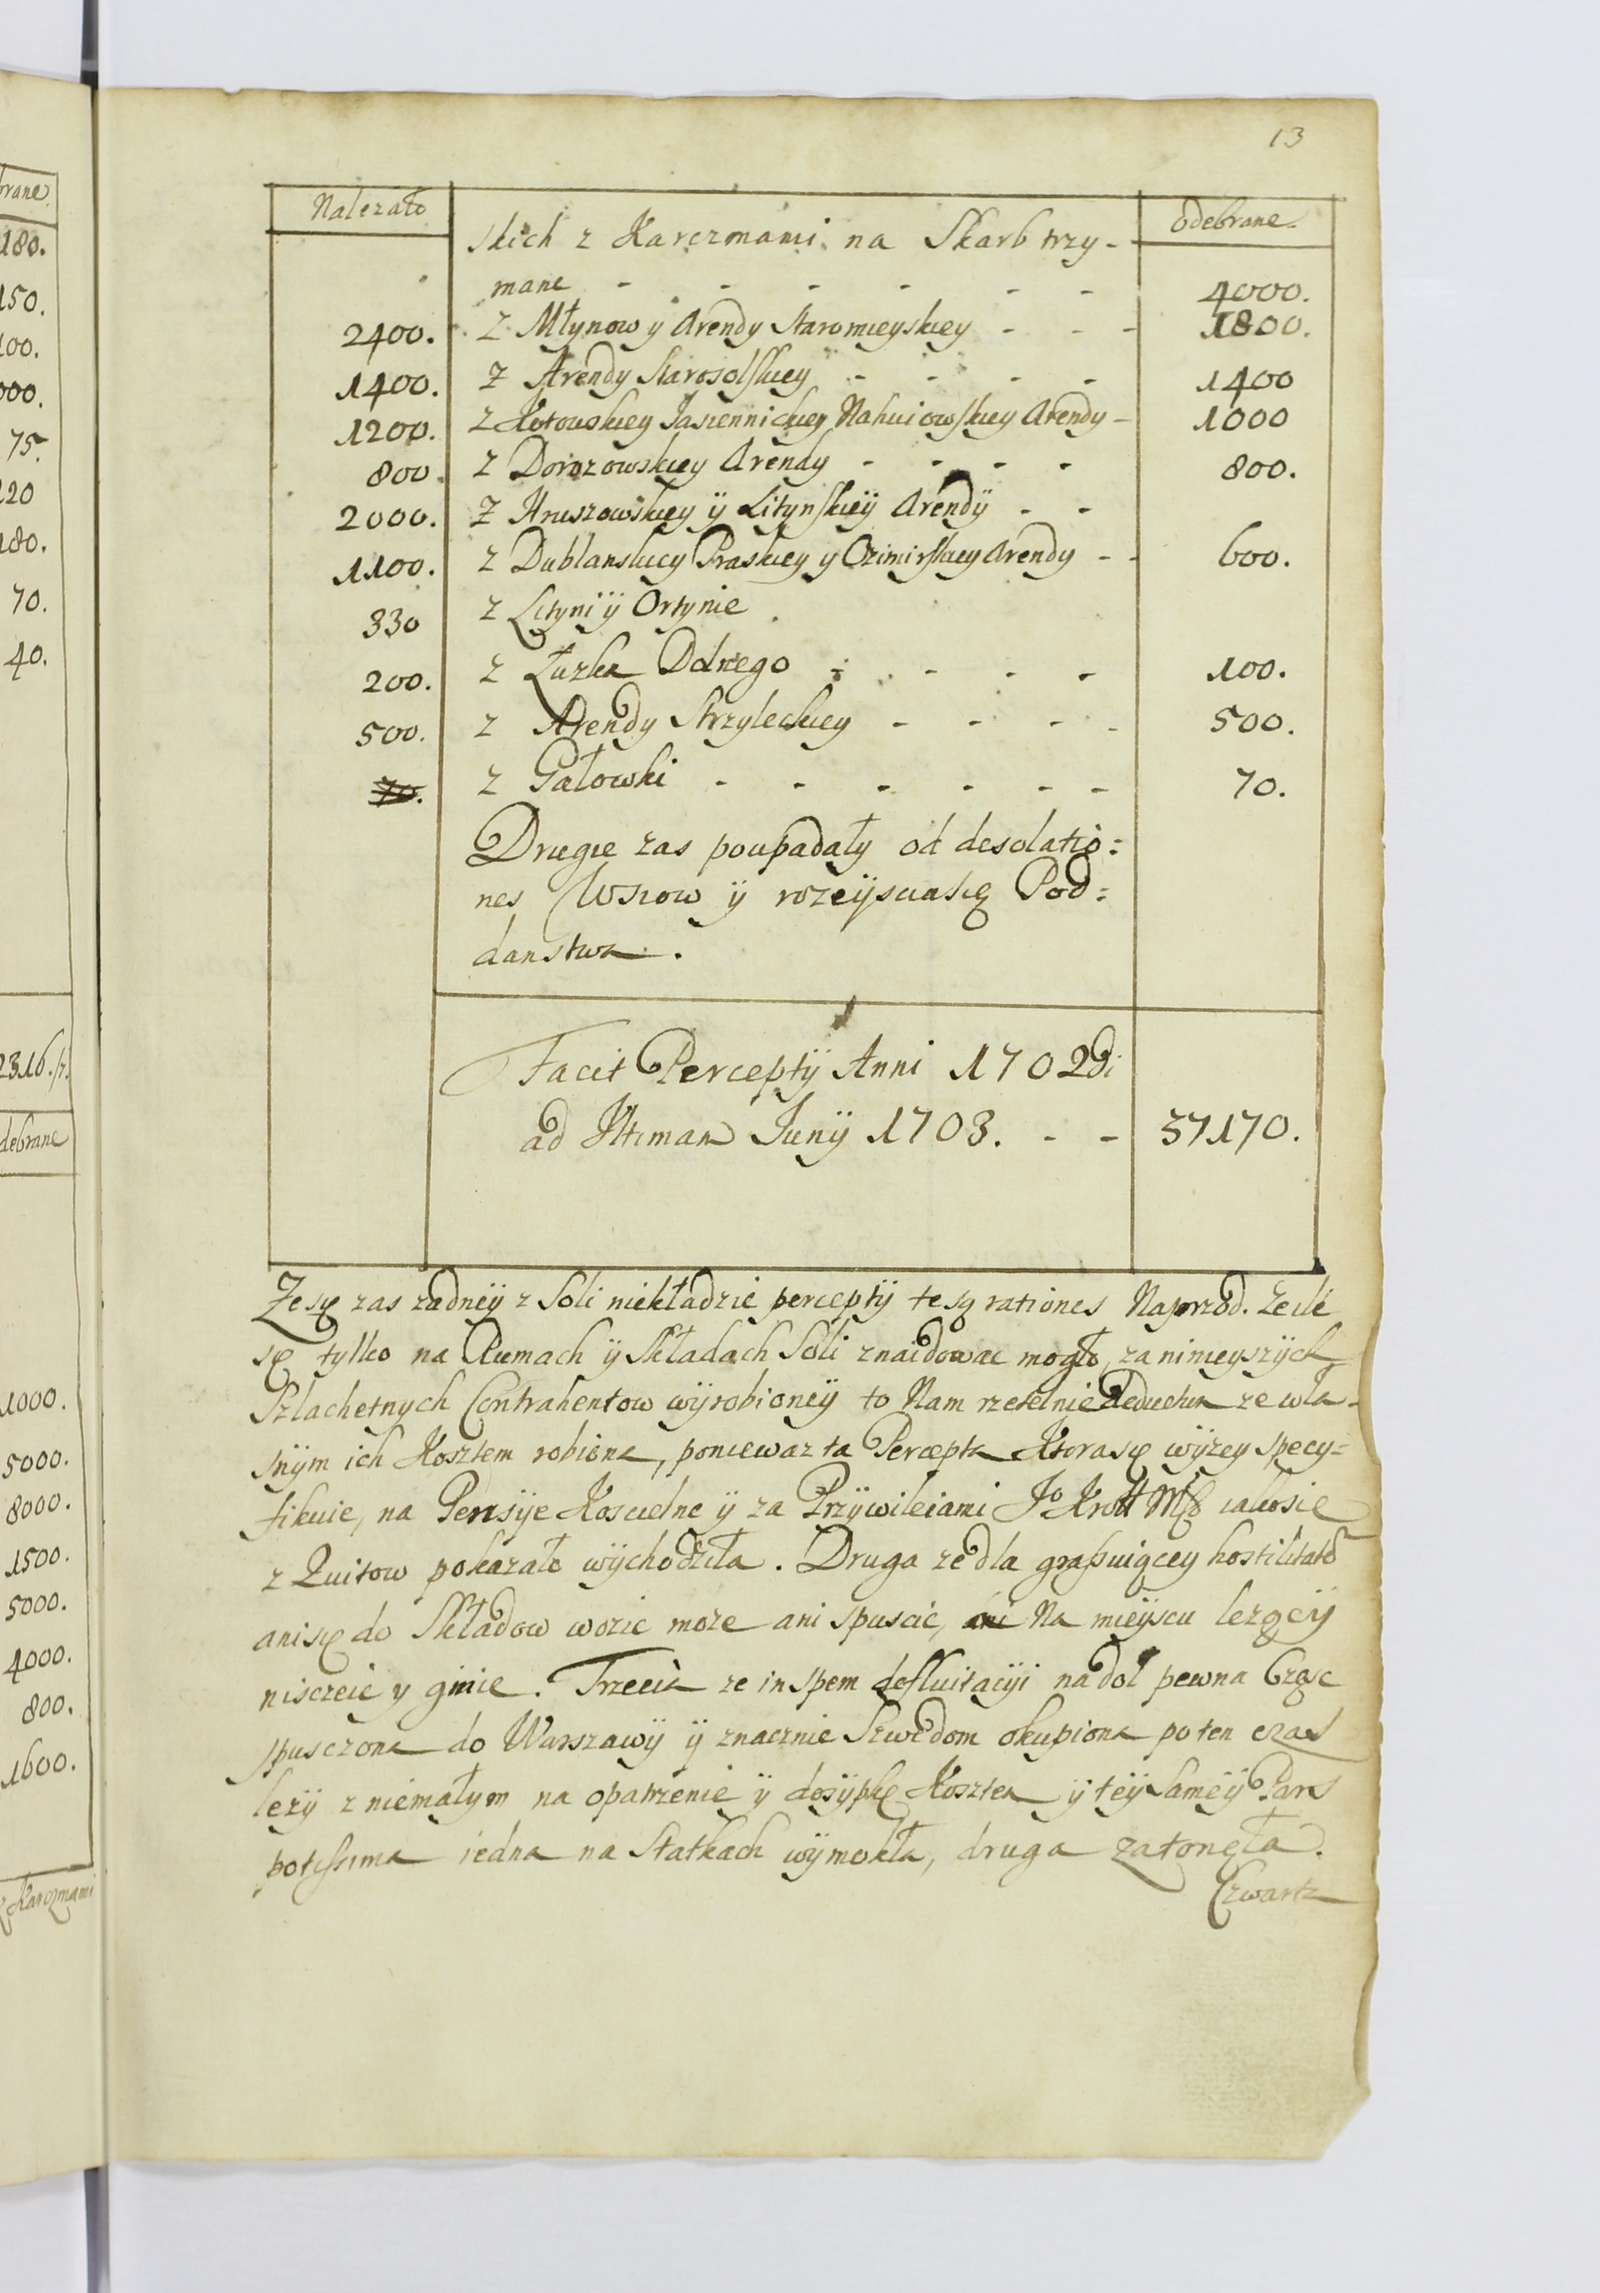 13
Nalezało Odebrane
skich z Karczmami na Skarb trzy-
mane - - - - - - 4000.
2400. Z Młynow y Arendy Staromieyskiey - - - 1800.
1400. Z Arendy Starosolskiey - - - - 1400
1200. Z Kotowskiey Jasiennickiey Nahuiowskiey Arendy - 1000
800. z Dorozowskiey Arendy - - - - 800.
2000. Z Hruszowskiey ÿ Litynskieÿ Arendÿ - -
1100. z Dublanskiey Praskiey y Ozimirskiey Arendy - - 600.
330 z Lityni ÿ Ortynie
200. z Łuzka Dolnego - - - - 100.
500. z Arendy Strzyleckiey - - - - 500.
70. z Gałowki - - - - - - 70.
Drugie zas poupadały od desolatio=
nes Wsiow ÿ rozeÿscia się Pod=
danstwa.
Facit Perceptÿ Anni 1702di
ad Ultimam Junÿ 1703. - - 37170.
Ze się zas zadneÿ z Soli niekładzie perceptÿ te są rationes Naprzod. Ze ile
się tylko na Bumach ÿ Składach Soli znaidowac mogło, za nimieyszÿch
Szlachetnych Contrahentow wÿrobioneÿ to Nam rzetelnie deducta ze wła-
snÿm ich Kosztem robiona, poniewaz ta Percepta Ktora się wÿzey specy=
fikuie, na Pensÿe Koscielne ÿ za Przÿwileiami Jo Kro Mci iako sie
z Quitow pokazało wÿchodziła. Druga ze dla grassuiącey hostilitatis
ani się do Składow wozic moze ani spuscic, Na mieÿscu lezącÿ
nisczeie y ginie. Trzecia ze in spem defluitacÿi na doł pewna Częsc
spusczona do Warszawÿ ÿ znacznie Szwedom okupiona po ten czas
lezÿ z niemałym na opatrzenie ÿ dosÿpkę Kosztem ÿ teÿ sameÿ Pars
potissima iedna na Statkach wÿmokła, druga zatonęła.
Czwarta
brane
180.
150.
100.
000.
75.
120
180.
70.
40.
2316.
debrane
1000.
5000.
8000.
1500.
5000.
4000.
800.
1600.
z Karczmami